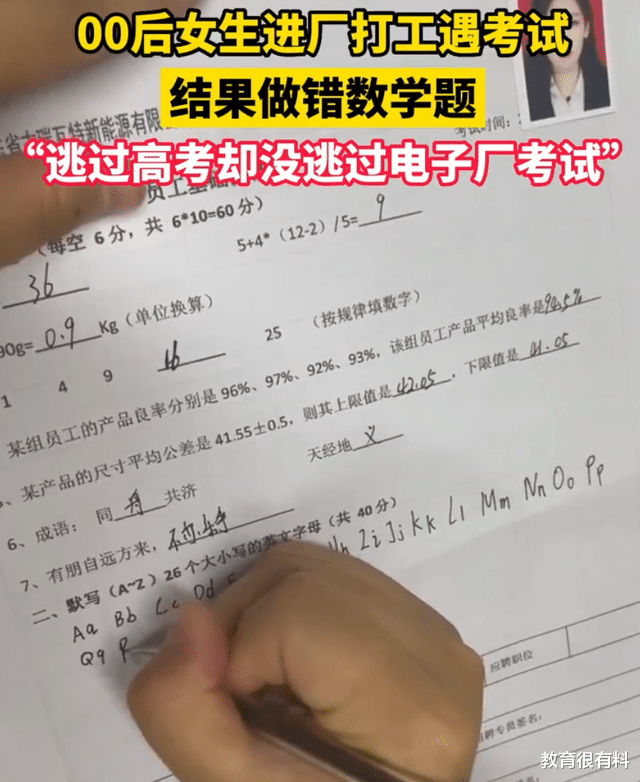 00后女生进厂打工遇考试
结果做错数学题
“逃过高考却没逃过电子厂考试”
瓦特新能源有限
考试时间:
(每空 6分,共 6*10=60 分)
5+4*(12-2)/5= 9
36
90g= 0.9 Kg(单位换算)
1 4 9 16 25 (按规律填数字)
某组员工的产品良率分别是 96%、97%、92%、93%,该组员工产品平均良率是 94.5%
、某产品的尺寸平均公差是 41.55±0.5,则其上限值是 42.05 ,下限值是 41.05
6、成语: 同 舟 共济 天经地 义
7、有朋自远方来,
二、默写(A~Z)26 个大小写的英文字母(共 40 分)
Aa Bb Cc Dd Ii Jj Kk Ll Mm Nn Oo Pp
Qq
应聘职位
聘专员签名:
教育很有料